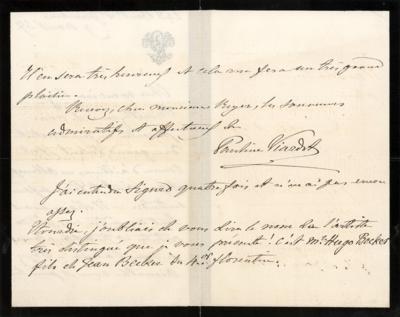 Il en sera très heureux et cela me fera un très grand
plaisir.
Recevez, cher monsieur Reyer, les souvenirs
admiratifs et affectueux de
Pauline Viardot
J'ai entendu Sigurd quatre fois et n'en ai pas encore
assez.
Etourdie, j'oubliais de vous dire le nom de l'artiste
très distingué que je vous présente! C'est Mr Hugo Becker
fils de Jean Becker du 4or florentin.